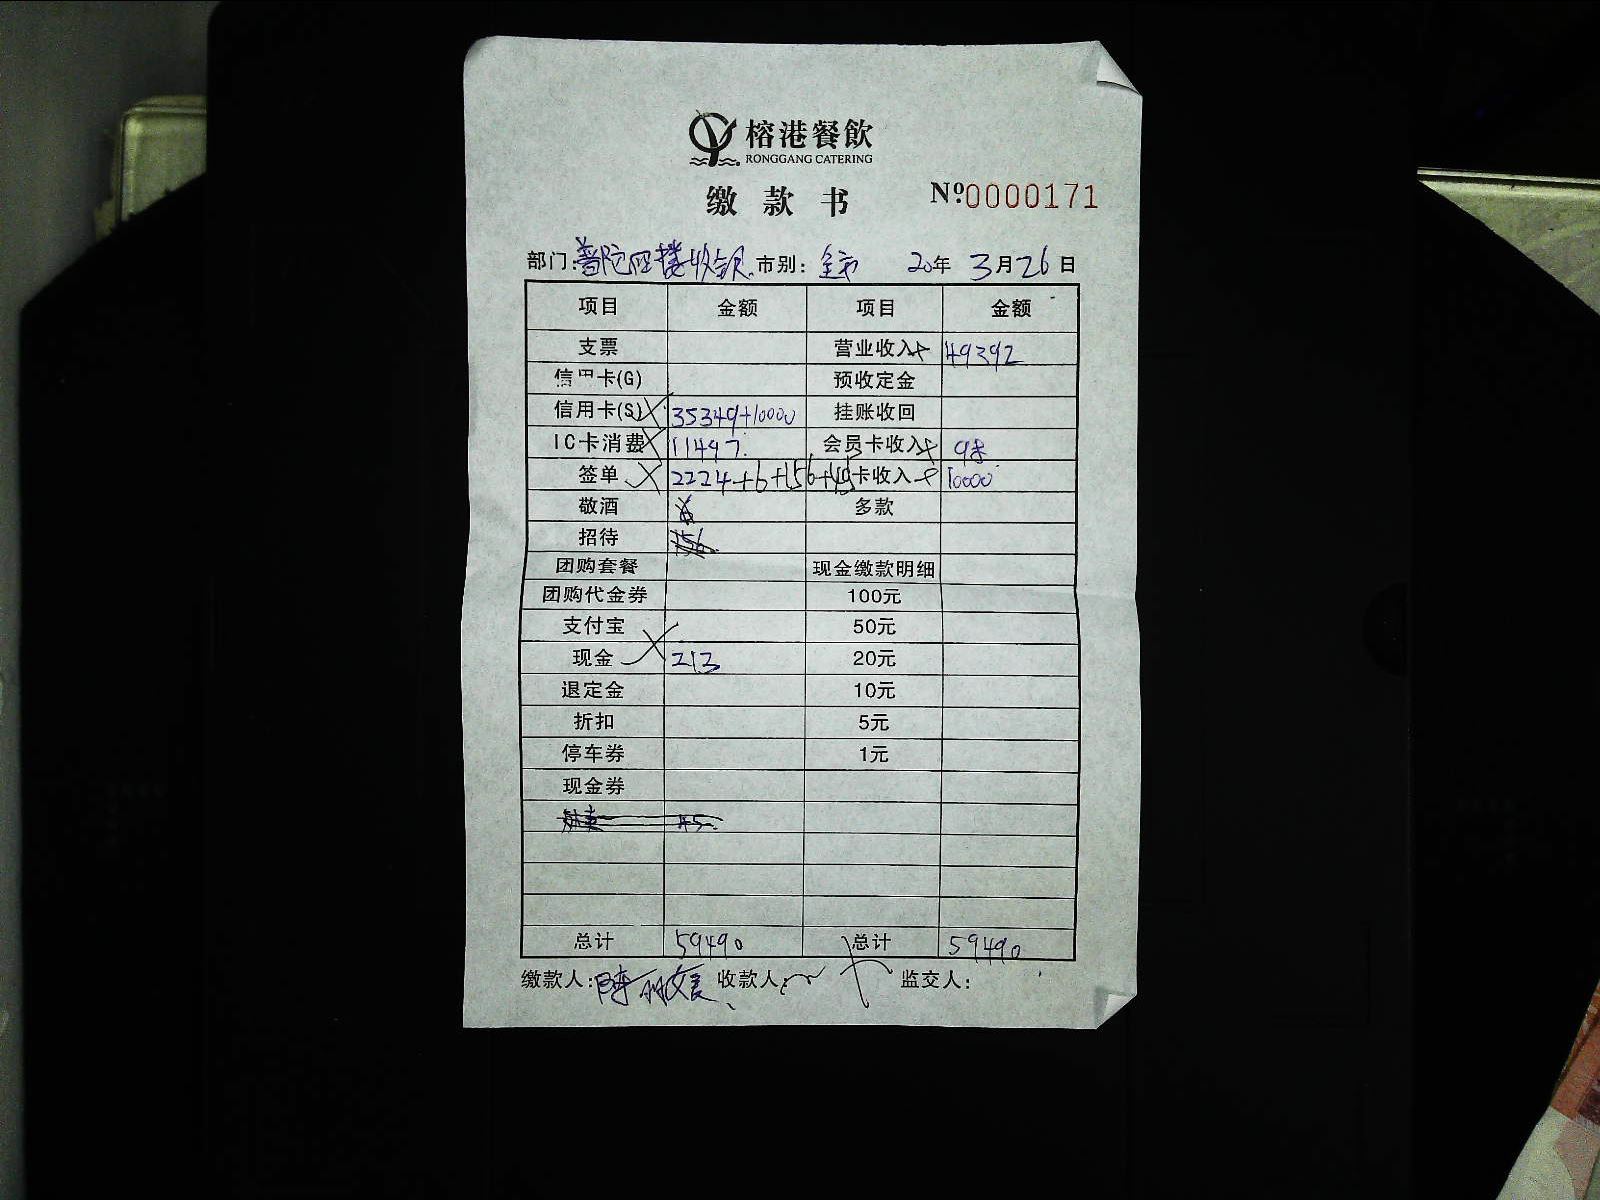 榕港餐飲
RONGGANG CATERING
缴款书 Nº0000171
部门:普陀四楼收银 市别:全市 20年 3月26日
项目 金额 项目 金额
支票 营业收入 49392
信用卡(G) 预收定金
信用卡(S) 35349+10000 挂账收回
IC卡消费 11497 会员卡收入 98
签单 2224+6+156+45 卡收入 10000
敬酒 多款
招待 156
团购套餐 现金缴款明细
团购代金券 100元
支付宝 50元
现金 213 20元
退定金 10元
折扣 5元
停车券 1元
现金券
45
总计 59490 总计 59490
缴款人: 收款人: 监交人: